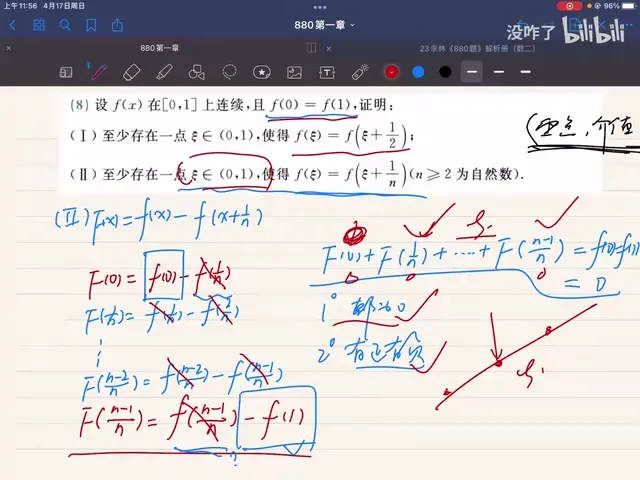 上午11:56 4月17日周日
96%
880第一章
没咋了 bilibili
880第一章
23李林《880题》解析册(数二)
(8) 设 f(x) 在[0,1]上连续,且 f(0) = f(1),证明:
(Ⅰ) 至少存在一点 ξ∈(0,1),使得 f(ξ) = f(ξ + 1/2);
(Ⅱ) 至少存在一点 ξ∈(0,1),使得 f(ξ) = f(ξ + 1/n)(n ≥ 2 为自然数).
(Ⅱ) F(x) = f(x) - f(x+1/n)
F(0) = f(0) - f(1/n)
F(1/n) = f(1/n) - f(2/n)
F(n-2/n) = f(n-2/n) - f(n-1/n)
F(n-1/n) = f(n-1/n) - f(1)
F(0) + F(1/n) + ···· + F(n-1/n) = f(0)-f(1)
= 0
1° 都为0
2° 有正有负